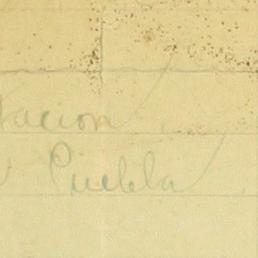 tacion
Puebla